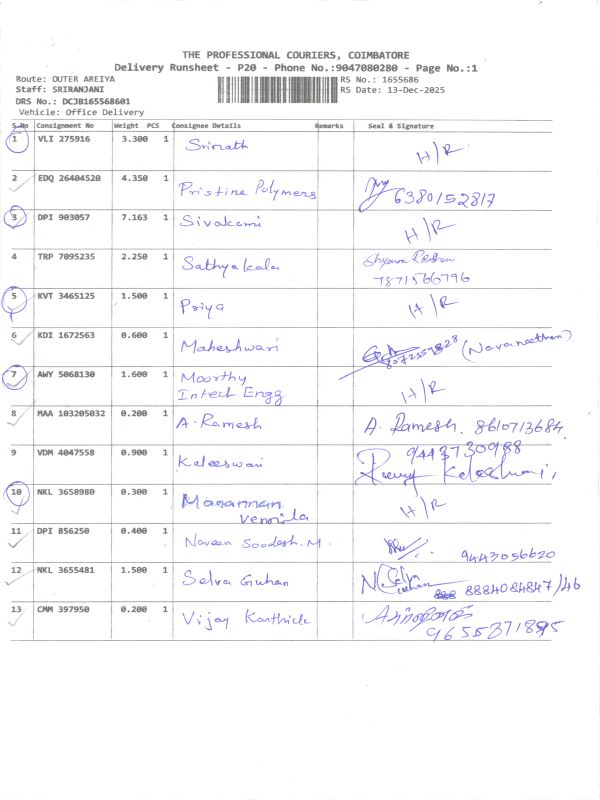 THE PROFESSIONAL COURIERS, COIMBATORE
Delivery Runsheet - P20 - Phone No.:9047080280 - Page No.:1
Route: OUTER AREIYA RS No.: 1655686
Staff: SRIRANJANI RS Date: 13-Dec-2025
DRS No.: DCJB165568601
Vehicle: Office Delivery
S.No Consignment No Weight PCS Consignee Details Remarks Seal & Signature
1 VLI 275916 3.300 1 Srinath H/R
2 EDQ 26404520 4.350 1 Pristine Polymers 6380152817
3 DPI 903057 7.163 1 Sivakami H/R
4 TRP 7095235 2.250 1 Sathyakala
7871566796
5 KVT 3465125 1.500 1 Priya H/R
6 KDI 1672563 0.600 1 Maheshwari (Navaneethan)
7 AWY 5068130 1.600 1 Moorthy H/R
Intech Engg
8 MAA 103205032 0.200 1 A. Ramesh A. Ramesh. 8610713684
9 VDM 4047558 0.900 1 Kaleeswari 9443730988
Kaleeshwari
10 NKL 3658980 0.300 1 H/R
Vennila
11 DPI 856250 0.400 1 Naveen M. 9443056620
12 NKL 3655481 1.500 1 Selva Guhan N. Selva Guhan
8884084847/46
13 CMM 397950 0.200 1 Vijay Karthick